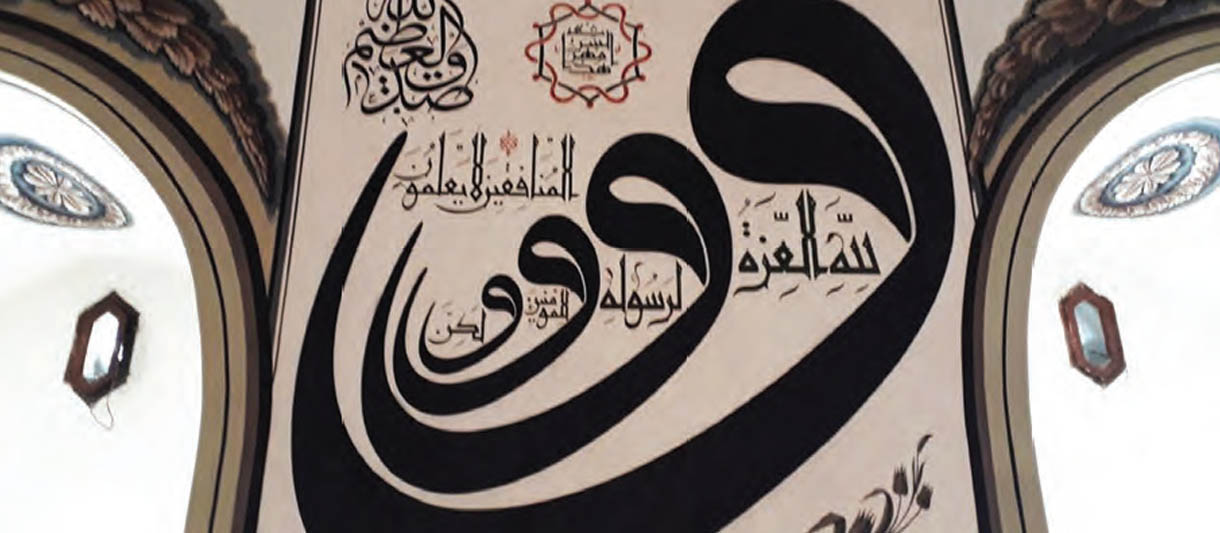 صدق الله العظيم
و لله العزة
و لرسوله
و للمومنين
و لكن
المنافقين لا يعلمون